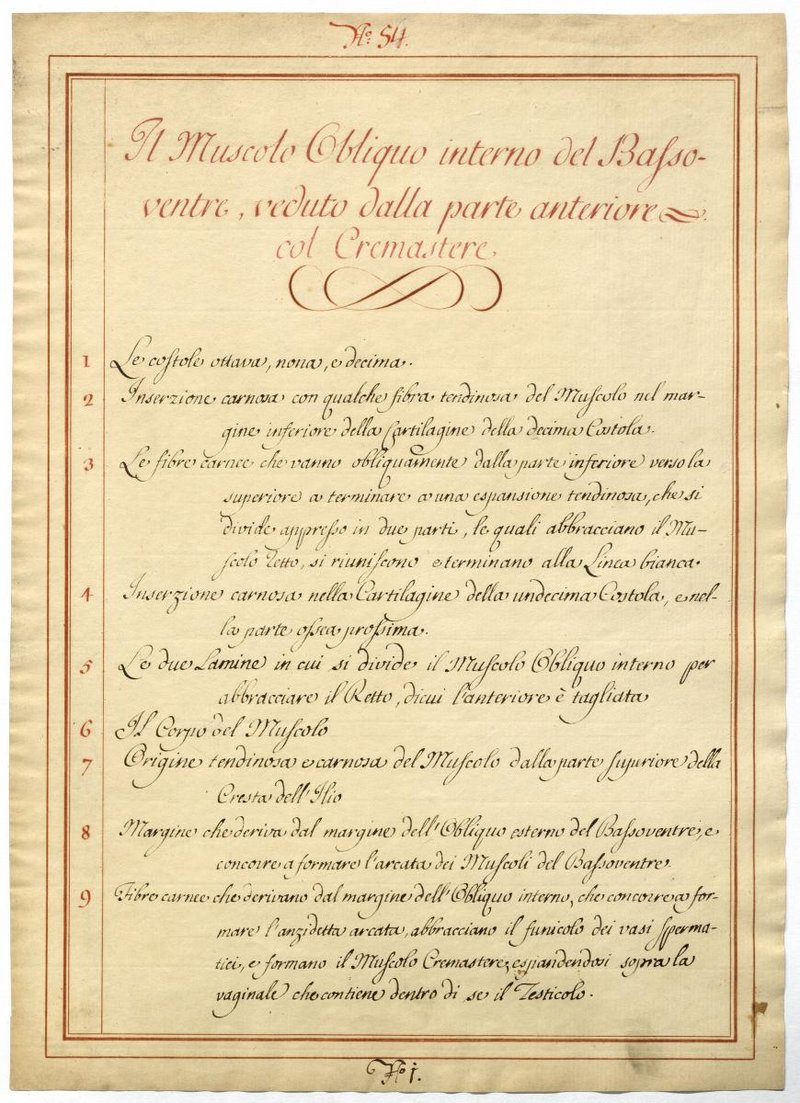 No. 54.
Il Muscolo Obliquo interno del Basso-
ventre, veduto dalla parte anteriore
col Cremastere
1 Le costole ottava, nona, e decima.
2 Inserzione carnosa con qualche fibra tendinosa del Muscolo nel mar-
gine inferiore della Cartilagine della decima Costola.
3 Le fibre carnee che vanno obliquamente dalla parte inferiore verso la
superiore a terminare a una espansione tendinosa, che si
divide appresso in due parti, le quali abbracciano il Mu-
scolo Retto, si riuniscono e terminano alla Linea bianca
4 Inserzione carnosa nella Cartilagine della undecima Costola, e nel-
la parte ossea prossima.
5 Le due Lamine in cui si divide il Muscolo Obliquo interno per
abbracciare il Retto, di cui l'anteriore è tagliata
6 Il Corpo del Muscolo
7 Origine tendinosa e carnosa del Muscolo dalla parte superiore della
Cresta dell'Ilio
8 Margine che deriva dal margine dell'Obliquo esterno del Bassoventre, e
concorre a formare l'arcata dei Muscoli del Bassoventre.
9 Fibre carnee che derivano dal margine dell'Obliquo interno, che concorre a for-
mare l'anzidetta arcata, abbracciano il funicolo dei vasi sperma-
tici, e formano il Muscolo Cremastere, espandendosi sopra la
vaginale che contiene dentro di se il Testicolo.
No. 1.